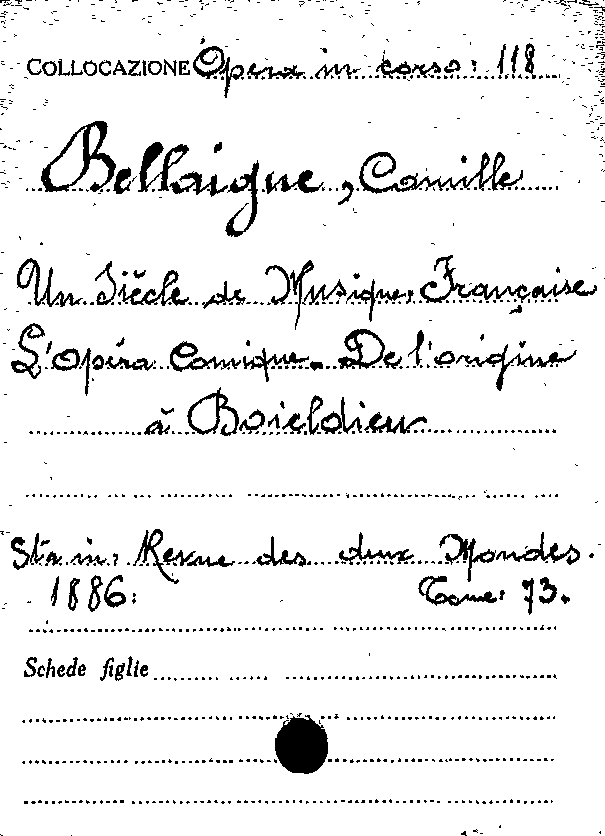 COLLOCAZIONE Opera in corso: 118
Bellaigue, Camille
Un Siècle de Musique Française
L'Opéra Comique. De l'origine
à Boieldieu
Sta in: Revue des deux Mondes.
1886: Tome: 73.
Schede figlie